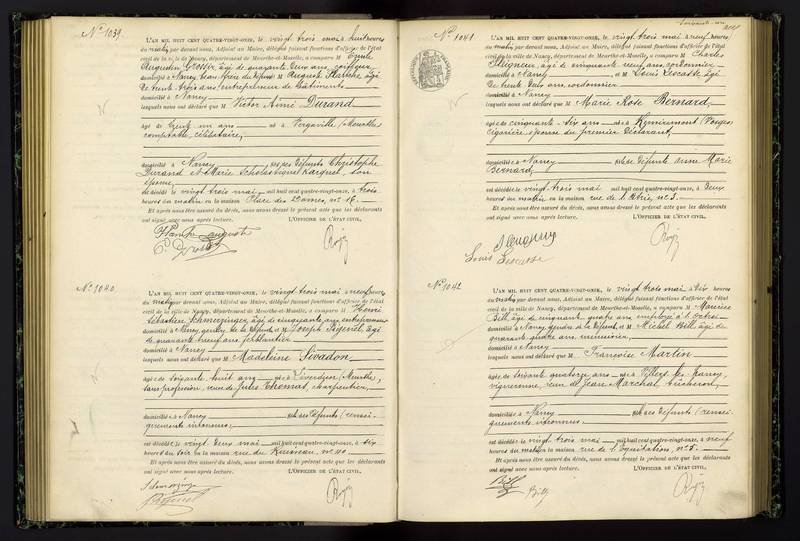 N° 1039.
L'AN MIL HUIT CENT QUATRE-VINGT-ONZE, le vingt trois mai à huit heures
du matin, par devant nous, Adjoint au Maire, délégué faisant fonctions d'officier de l'état
civil de la ville de Nancy, département de Meurthe-et-Moselle, a comparu M Emile
Augustin âgé de quarante deux ans, coiffeur
domicilié à Nancy, beau frère du défunt et M Auguste Planche âgé
de trente trois ans, entrepreneur de bâtiments
domicilié à Nancy
lesquels nous ont déclaré que M Victor Aimé Durand
âgé de trente un ans né à Vergaville (Meurthe)
comptable, célibataire,
domicilié à Nancy fils des défunts Christophe
Durand et Marie Scholastique Karquel, son
épouse,
est décédé le vingt trois mai mil huit cent quatre-vingt-onze, à trois
heures du matin en la maison Place des Dames, n° 16.
Et après nous être assuré du décès, nous avons dressé le présent acte que les déclarants
ont signé avec nous après lecture. L'OFFICIER DE L'ÉTAT CIVIL,
Planche Auguste
N° 1040.
L'AN MIL HUIT CENT QUATRE-VINGT-ONZE, le vingt trois mai à neuf heures
du matin, par devant nous, Adjoint au Maire, délégué faisant fonctions d'officier de l'état
civil de la ville de Nancy, département de Meurthe-et-Moselle, a comparu M Henri
Sébastien âgé de cinquante ans, entrepreneur
domicilié à Nancy, gendre de la défunte et M Joseph Bigerel, âgé
de quarante neuf ans, ferblantier
domicilié à Nancy
lesquels nous ont déclaré que M Madeleine Sivadon
âgée de soixante huit ans née à Liverdun (Meurthe),
sans profession, veuve de Jules Thomas, charpentier,
domiciliée à Nancy fille des défunts (rensei-
gnements inconnus)
est décédée le vingt deux mai mil huit cent quatre-vingt-onze, à dix
heures du soir en la maison rue du Ruisseau, n° 40
Et après nous être assuré du décès, nous avons dressé le présent acte que les déclarants
ont signé avec nous après lecture. L'OFFICIER DE L'ÉTAT CIVIL,
N° 1041
L'AN MIL HUIT CENT QUATRE-VINGT-ONZE, le vingt trois mai à neuf heures
du matin, par devant nous, Adjoint au Maire, délégué faisant fonctions d'officier de l'état
civil de la ville de Nancy, département de Meurthe-et-Moselle, a comparu M Charles
âgé de cinquante neuf ans, cordonnier
domicilié à Nancy et M Louis Lecasse âgé
de trente deux ans, cordonnier
domicilié à Nancy
lesquels nous ont déclaré que M Marie Rose Bernard,
âgée de cinquante six ans née à Remiremont (Vosges)
cigarière, épouse du premier déclarant,
domiciliée à Nancy fille de défunte Anne Marie
Bernard,
est décédée le vingt trois mai mil huit cent quatre-vingt-onze, à deux
heures du matin en la maison rue de l'Atrie, n° 3.
Et après nous être assuré du décès, nous avons dressé le présent acte que les déclarants
ont signé avec nous après lecture. L'OFFICIER DE L'ÉTAT CIVIL,
Louis Lecasse
N° 1042
L'AN MIL HUIT CENT QUATRE-VINGT-ONZE, le vingt trois mai à dix heures
du matin, par devant nous, Adjoint au Maire, délégué faisant fonctions d'officier de l'état
civil de la ville de Nancy, département de Meurthe-et-Moselle, a comparu M Maurice
Bill, âgé de cinquante quatre ans, employé à l'octroi
domicilié à Nancy, gendre de la défunte, et M Michel Bill, âgé de
quarante quatre ans, menuisier,
domicilié à Nancy
lesquels nous ont déclaré que M Françoise Martin
âgée de soixante quatorze ans née à Villers les Nancy,
vigneronne, veuve de Jean Marchal, bûcheron,
domiciliée à Nancy fille des défunts (rensei-
gnements inconnus)
est décédée le vingt trois mai mil huit cent quatre-vingt-onze, à neuf
heures du matin en la maison rue de l'Equitation, n° 5.
Et après nous être assuré du décès, nous avons dressé le présent acte que les déclarants
ont signé avec nous après lecture. L'OFFICIER DE L'ÉTAT CIVIL,